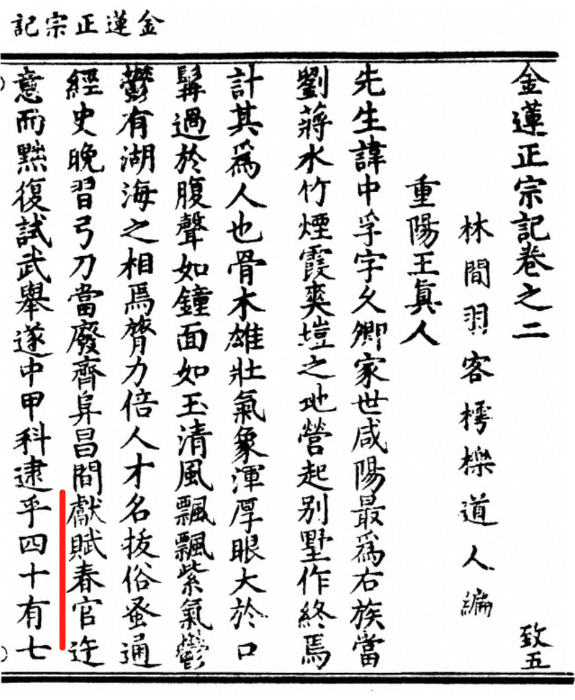 金蓮正宗記
金蓮正宗記卷之二
致五
林間羽客樗櫟道人編
重陽王眞人
先生諱中孚字久卿家世咸陽最爲右族當
劉蔣水竹煙霞爽塏之地營起别墅作終焉
計其爲人也骨木雄壯氣象渾厚眼大於口
髯過於腹聲如鐘面如玉清風飄飄紫氣鬱
鬱有湖海之相焉膂力倍人才名拔俗蚤通
經史晚習弓刀當廢齊阜昌間獻賦春官迕
意而黙復試武舉遂中甲科逮乎四十有七